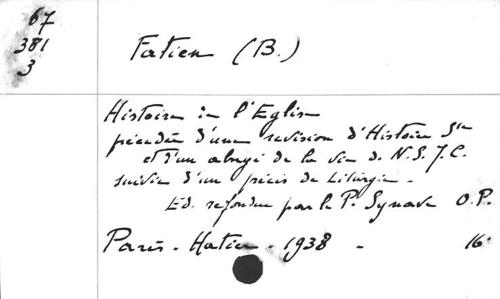 67
381
3
Fatien (B.)
Histoire de l'Eglise
précédée d'une revision d'Histoire Ste
et d'un abrégé de la vie de N.S.J.C.
suivie d'un précis de Liturgie.
Ed. refondue par le P. Synave O.P.
Paris - Hatier - 1938 - 16°